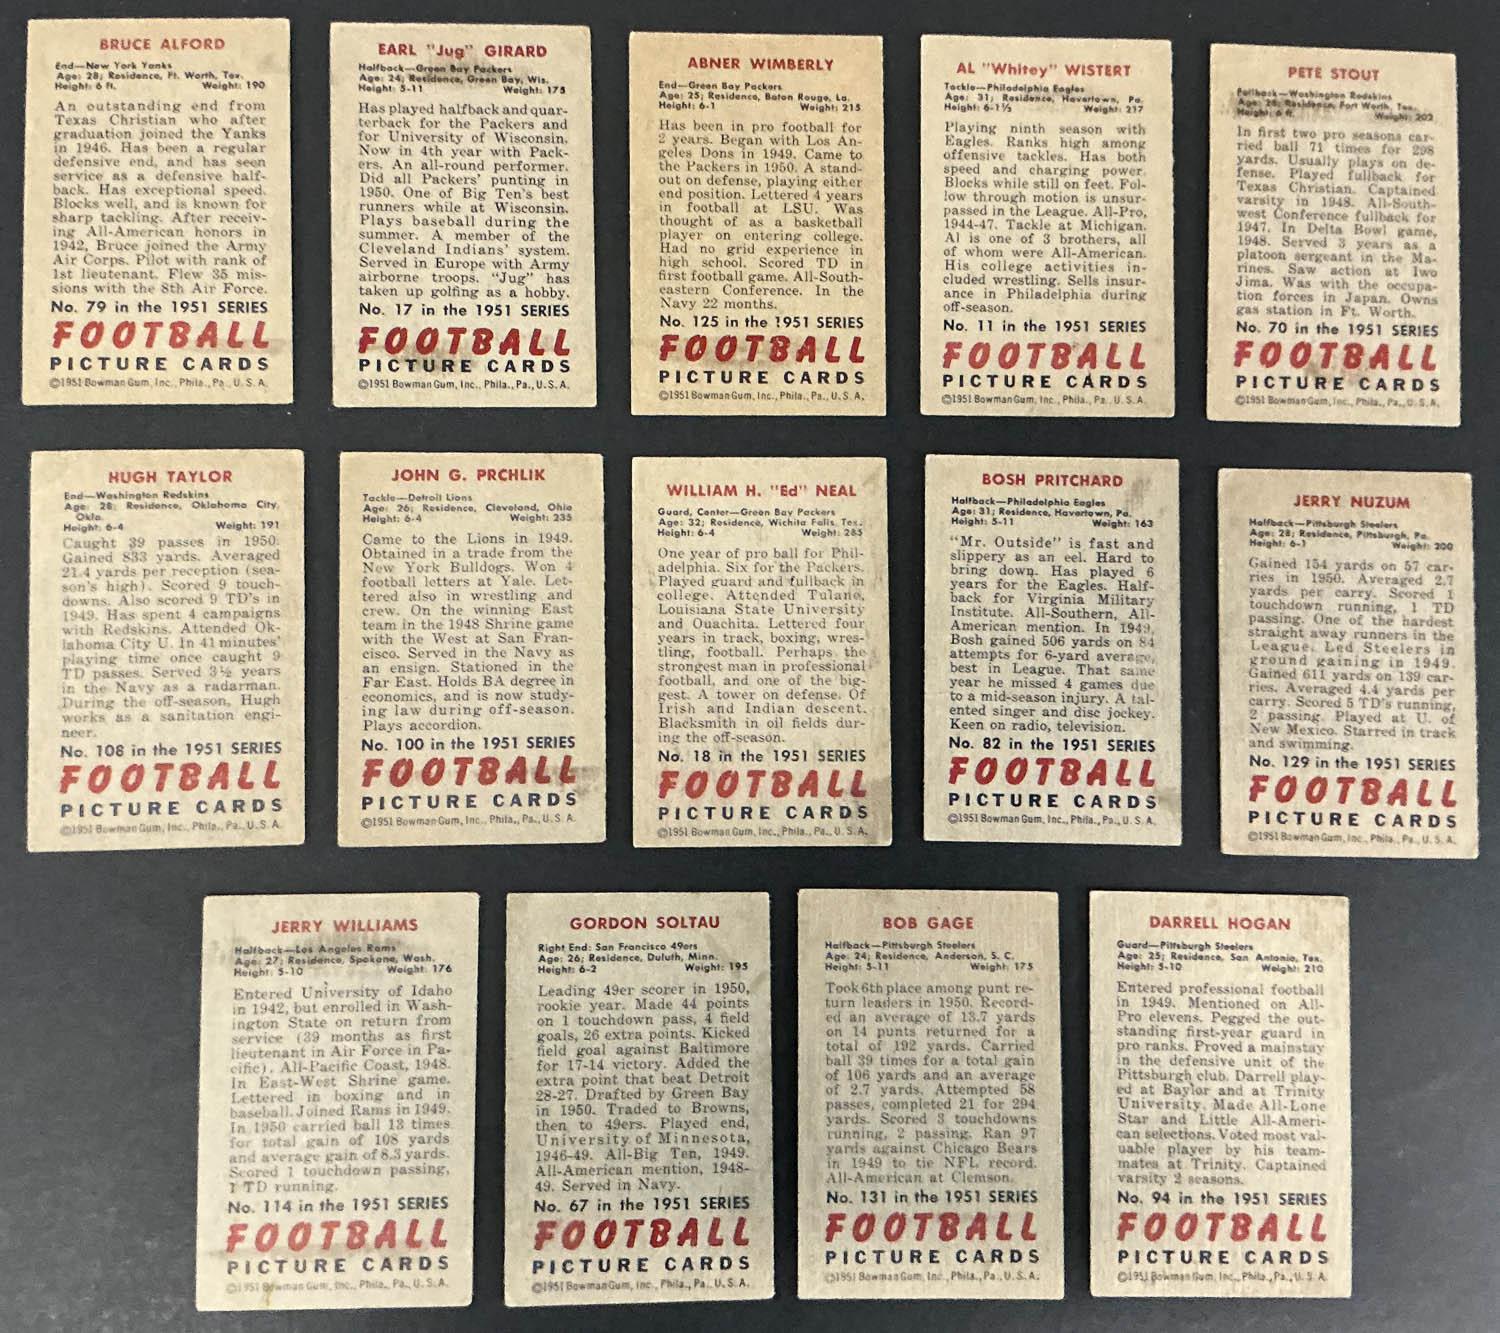 BRUCE ALFORD
End—New York Yanks
Age: 28; Residence, Ft. Worth, Tex.
Height: 6 ft. Weight: 190
An outstanding end from
Texas Christian who after
graduation joined the Yanks
in 1946. Has been a regular
defensive end, and has seen
service as a defensive half-
back. Has exceptional speed.
Blocks well, and is known for
sharp tackling. After receiv-
ing All-American honors in
1942, Bruce joined the Army
Air Corps. Pilot with rank of
1st lieutenant. Flew 35 mis-
sions with the 8th Air Force.
No. 79 in the 1951 SERIES
FOOTBALL
PICTURE CARDS
©1951 Bowman Gum, Inc., Phila., Pa., U. S. A.
EARL "Jug" GIRARD
Halfback—Green Bay Packers
Age: 24; Residence, Green Bay, Wis.
Height: 5-11 Weight: 175
Has played halfback and quar-
terback for the Packers and
for University of Wisconsin.
Now in 4th year with Pack-
ers. An all-round performer.
Did all Packers' punting in
1950. One of Big Ten's best
runners while at Wisconsin.
Plays baseball during the
summer. A member of the
Cleveland Indians' system.
Served in Europe with Army
airborne troops. "Jug" has
taken up golfing as a hobby.
No. 17 in the 1951 SERIES
FOOTBALL
PICTURE CARDS
©1951 Bowman Gum, Inc., Phila., Pa., U. S. A.
ABNER WIMBERLY
End—Green Bay Packers
Age: 25; Residence, Baton Rouge, La.
Height: 6-1 Weight: 215
Has been in pro football for
2 years. Began with Los An-
geles Dons in 1949. Came to
the Packers in 1950. A stand-
out on defense, playing either
end position. Lettered 4 years
in football at LSU. Was
thought of as a basketball
player on entering college.
Had no grid experience in
high school. Scored TD in
first football game. All-South-
eastern Conference. In the
Navy 22 months.
No. 125 in the 1951 SERIES
FOOTBALL
PICTURE CARDS
©1951 Bowman Gum, Inc., Phila., Pa., U. S. A.
AL "Whitey" WISTERT
Tackle—Philadelphia Eagles
Age: 31; Residence, Havertown, Pa.
Height: 6-1½ Weight: 217
Playing ninth season with
Eagles. Ranks high among
offensive tackles. Has both
speed and charging power.
Blocks while still on feet. Fol-
low through motion is unsur-
passed in the League. All-Pro,
1944-47. Tackle at Michigan.
Al is one of 3 brothers, all
of whom were All-American.
His college activities in-
cluded wrestling. Sells insur-
ance in Philadelphia during
off-season.
No. 11 in the 1951 SERIES
FOOTBALL
PICTURE CARDS
©1951 Bowman Gum, Inc., Phila., Pa., U. S. A.
PETE STOUT
Fullback—Washington Redskins
Age: 28; Residence, Fort Worth, Tex.
Height: 6 ft. Weight: 202
In first two pro seasons car-
ried ball 71 times for 298
yards. Usually plays on de-
fense. Played fullback for
Texas Christian. Captained
varsity in 1948. All-South-
west Conference fullback for
1947. In Delta Bowl game,
1948. Served 3 years as a
platoon sergeant in the Ma-
rines. Saw action at Iwo
Jima. Was with the occupa-
tion forces in Japan. Owns
gas station in Ft. Worth.
No. 70 in the 1951 SERIES
FOOTBALL
PICTURE CARDS
©1951 Bowman Gum, Inc., Phila., Pa., U. S. A.
HUGH TAYLOR
End—Washington Redskins
Age: 28; Residence, Oklahoma City,
Okla.
Height: 6-4 Weight: 191
Caught 39 passes in 1950.
Gained 833 yards. Averaged
21.4 yards per reception (sea-
son's high). Scored 9 touch-
downs. Also scored 9 TD's in
1949. Has spent 4 campaigns
with Redskins. Attended Ok-
lahoma City U. In 41 minutes'
playing time once caught 9
TD passes. Served 3½ years
in the Navy as a radarman.
During the off-season, Hugh
works as a sanitation engi-
neer.
No. 108 in the 1951 SERIES
FOOTBALL
PICTURE CARDS
©1951 Bowman Gum, Inc., Phila., Pa., U. S. A.
JOHN G. PRCHLIK
Tackle—Detroit Lions
Age: 26; Residence, Cleveland, Ohio
Height: 6-4 Weight: 235
Came to the Lions in 1949.
Obtained in a trade from the
New York Bulldogs. Won 4
football letters at Yale. Let-
tered also in wrestling and
crew. On the winning East
team in the 1948 Shrine game
with the West at San Fran-
cisco. Served in the Navy as
an ensign. Stationed in the
Far East. Holds BA degree in
economics, and is now study-
ing law during off-season.
Plays accordion.
No. 100 in the 1951 SERIES
FOOTBALL
PICTURE CARDS
©1951 Bowman Gum, Inc., Phila., Pa., U. S. A.
WILLIAM H. "Ed" NEAL
Guard, Center—Green Bay Packers
Age: 32; Residence, Wichita Falls, Tex.
Height: 6-4 Weight: 285
One year of pro ball for Phil-
adelphia. Six for the Packers.
Played guard and fullback in
college. Attended Tulane,
Louisiana State University
and Ouachita. Lettered four
years in track, boxing, wres-
tling, football. Perhaps the
strongest man in professional
football, and one of the big-
gest. A tower on defense. Of
Irish and Indian descent.
Blacksmith in oil fields dur-
ing the off-season.
No. 18 in the 1951 SERIES
FOOTBALL
PICTURE CARDS
©1951 Bowman Gum, Inc., Phila., Pa., U. S. A.
BOSH PRITCHARD
Halfback—Philadelphia Eagles
Age: 31; Residence, Havertown, Pa.
Height: 5-11 Weight: 163
"Mr. Outside" is fast and
slippery as an eel. Hard to
bring down. Has played 6
years for the Eagles. Half-
back for Virginia Military
Institute. All-Southern, All-
American mention. In 1949,
Bosh gained 506 yards on 84
attempts for 6-yard average,
best in League. That same
year he missed 4 games due
to a mid-season injury. A tal-
ented singer and disc jockey.
Keen on radio, television.
No. 82 in the 1951 SERIES
FOOTBALL
PICTURE CARDS
©1951 Bowman Gum, Inc., Phila., Pa., U. S. A.
JERRY NUZUM
Halfback—Pittsburgh Steelers
Age: 28; Residence, Pittsburgh, Pa.
Height: 6-1 Weight: 200
Gained 154 yards on 57 car-
ries in 1950. Averaged 2.7
yards per carry. Scored 1
touchdown running, 1 TD
passing. One of the hardest
straight away runners in the
League. Led Steelers in
ground gaining in 1949.
Gained 611 yards on 139 car-
ries. Averaged 4.4 yards per
carry. Scored 5 TD's running,
2 passing. Played at U. of
New Mexico. Starred in track
and swimming.
No. 129 in the 1951 SERIES
FOOTBALL
PICTURE CARDS
©1951 Bowman Gum, Inc., Phila., Pa., U. S. A.
JERRY WILLIAMS
Halfback—Los Angeles Rams
Age: 27; Residence, Spokane, Wash.
Height: 5-10 Weight: 176
Entered University of Idaho
in 1942, but enrolled in Wash-
ington State on return from
service (39 months as first
lieutenant in Air Force in Pa-
cific). All-Pacific Coast, 1948.
In East-West Shrine game.
Lettered in boxing and in
baseball. Joined Rams in 1949.
In 1950 carried ball 13 times
for total gain of 108 yards
and average gain of 8.3 yards.
Scored 1 touchdown passing,
1 TD running.
No. 114 in the 1951 SERIES
FOOTBALL
PICTURE CARDS
©1951 Bowman Gum, Inc., Phila., Pa., U. S. A.
GORDON SOLTAU
Right End: San Francisco 49ers
Age: 26; Residence, Duluth, Minn.
Height: 6-2 Weight: 195
Leading 49er scorer in 1950,
rookie year. Made 44 points
on 1 touchdown pass, 4 field
goals, 26 extra points. Kicked
field goal against Baltimore
for 17-14 victory. Added the
extra point that beat Detroit
28-27. Drafted by Green Bay
in 1950. Traded to Browns,
then to 49ers. Played end,
University of Minnesota,
1946-49. All-Big Ten, 1949.
All-American mention, 1948-
49. Served in Navy.
No. 67 in the 1951 SERIES
FOOTBALL
PICTURE CARDS
©1951 Bowman Gum, Inc., Phila., Pa., U. S. A.
BOB GAGE
Halfback—Pittsburgh Steelers
Age: 24; Residence, Anderson, S. C.
Height: 5-11 Weight: 175
Took 6th place among punt re-
turn leaders in 1950. Record-
ed an average of 13.7 yards
on 14 punts returned for a
total of 192 yards. Carried
ball 39 times for a total gain
of 106 yards and an average
of 2.7 yards. Attempted 58
passes, completed 21 for 294
yards. Scored 3 touchdowns
running, 2 passing. Ran 97
yards against Chicago Bears
in 1949 to tie NFL record.
All-American at Clemson.
No. 131 in the 1951 SERIES
FOOTBALL
PICTURE CARDS
©1951 Bowman Gum, Inc., Phila., Pa., U. S. A.
DARRELL HOGAN
Guard—Pittsburgh Steelers
Age: 25; Residence, San Antonio, Tex.
Height: 5-10 Weight: 210
Entered professional football
in 1949. Mentioned on All-
Pro elevens. Pegged the out-
standing first-year guard in
pro ranks. Proved a mainstay
in the defensive unit of the
Pittsburgh club. Darrell play-
ed at Baylor and at Trinity
University. Made All-Lone
Star and Little All-Ameri-
can selections. Voted most val-
uable player by his team-
mates at Trinity. Captained
varsity 2 seasons.
No. 94 in the 1951 SERIES
FOOTBALL
PICTURE CARDS
©1951 Bowman Gum, Inc., Phila., Pa., U. S. A.